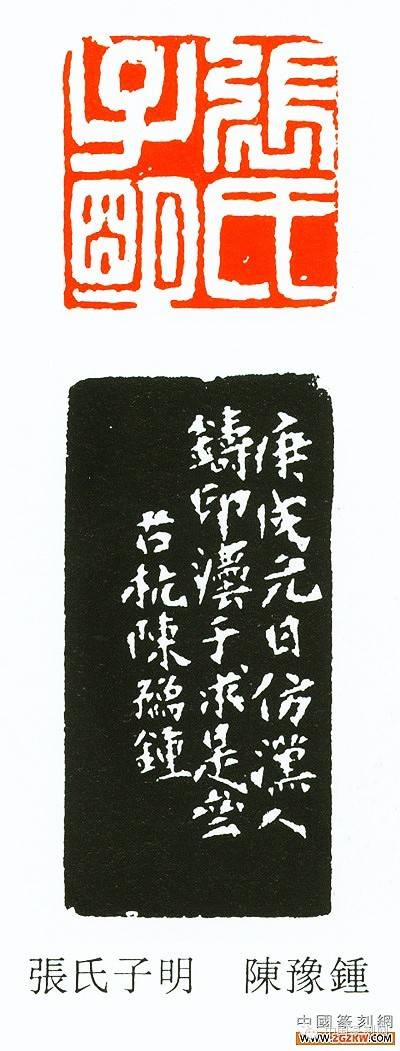 張氏
子明
庚戌元日仿漢人
鑄印灋于求是齋
古杭陳豫鍾
張氏子明 陳豫鍾
中國篆刻網
www.ZGZKW.com